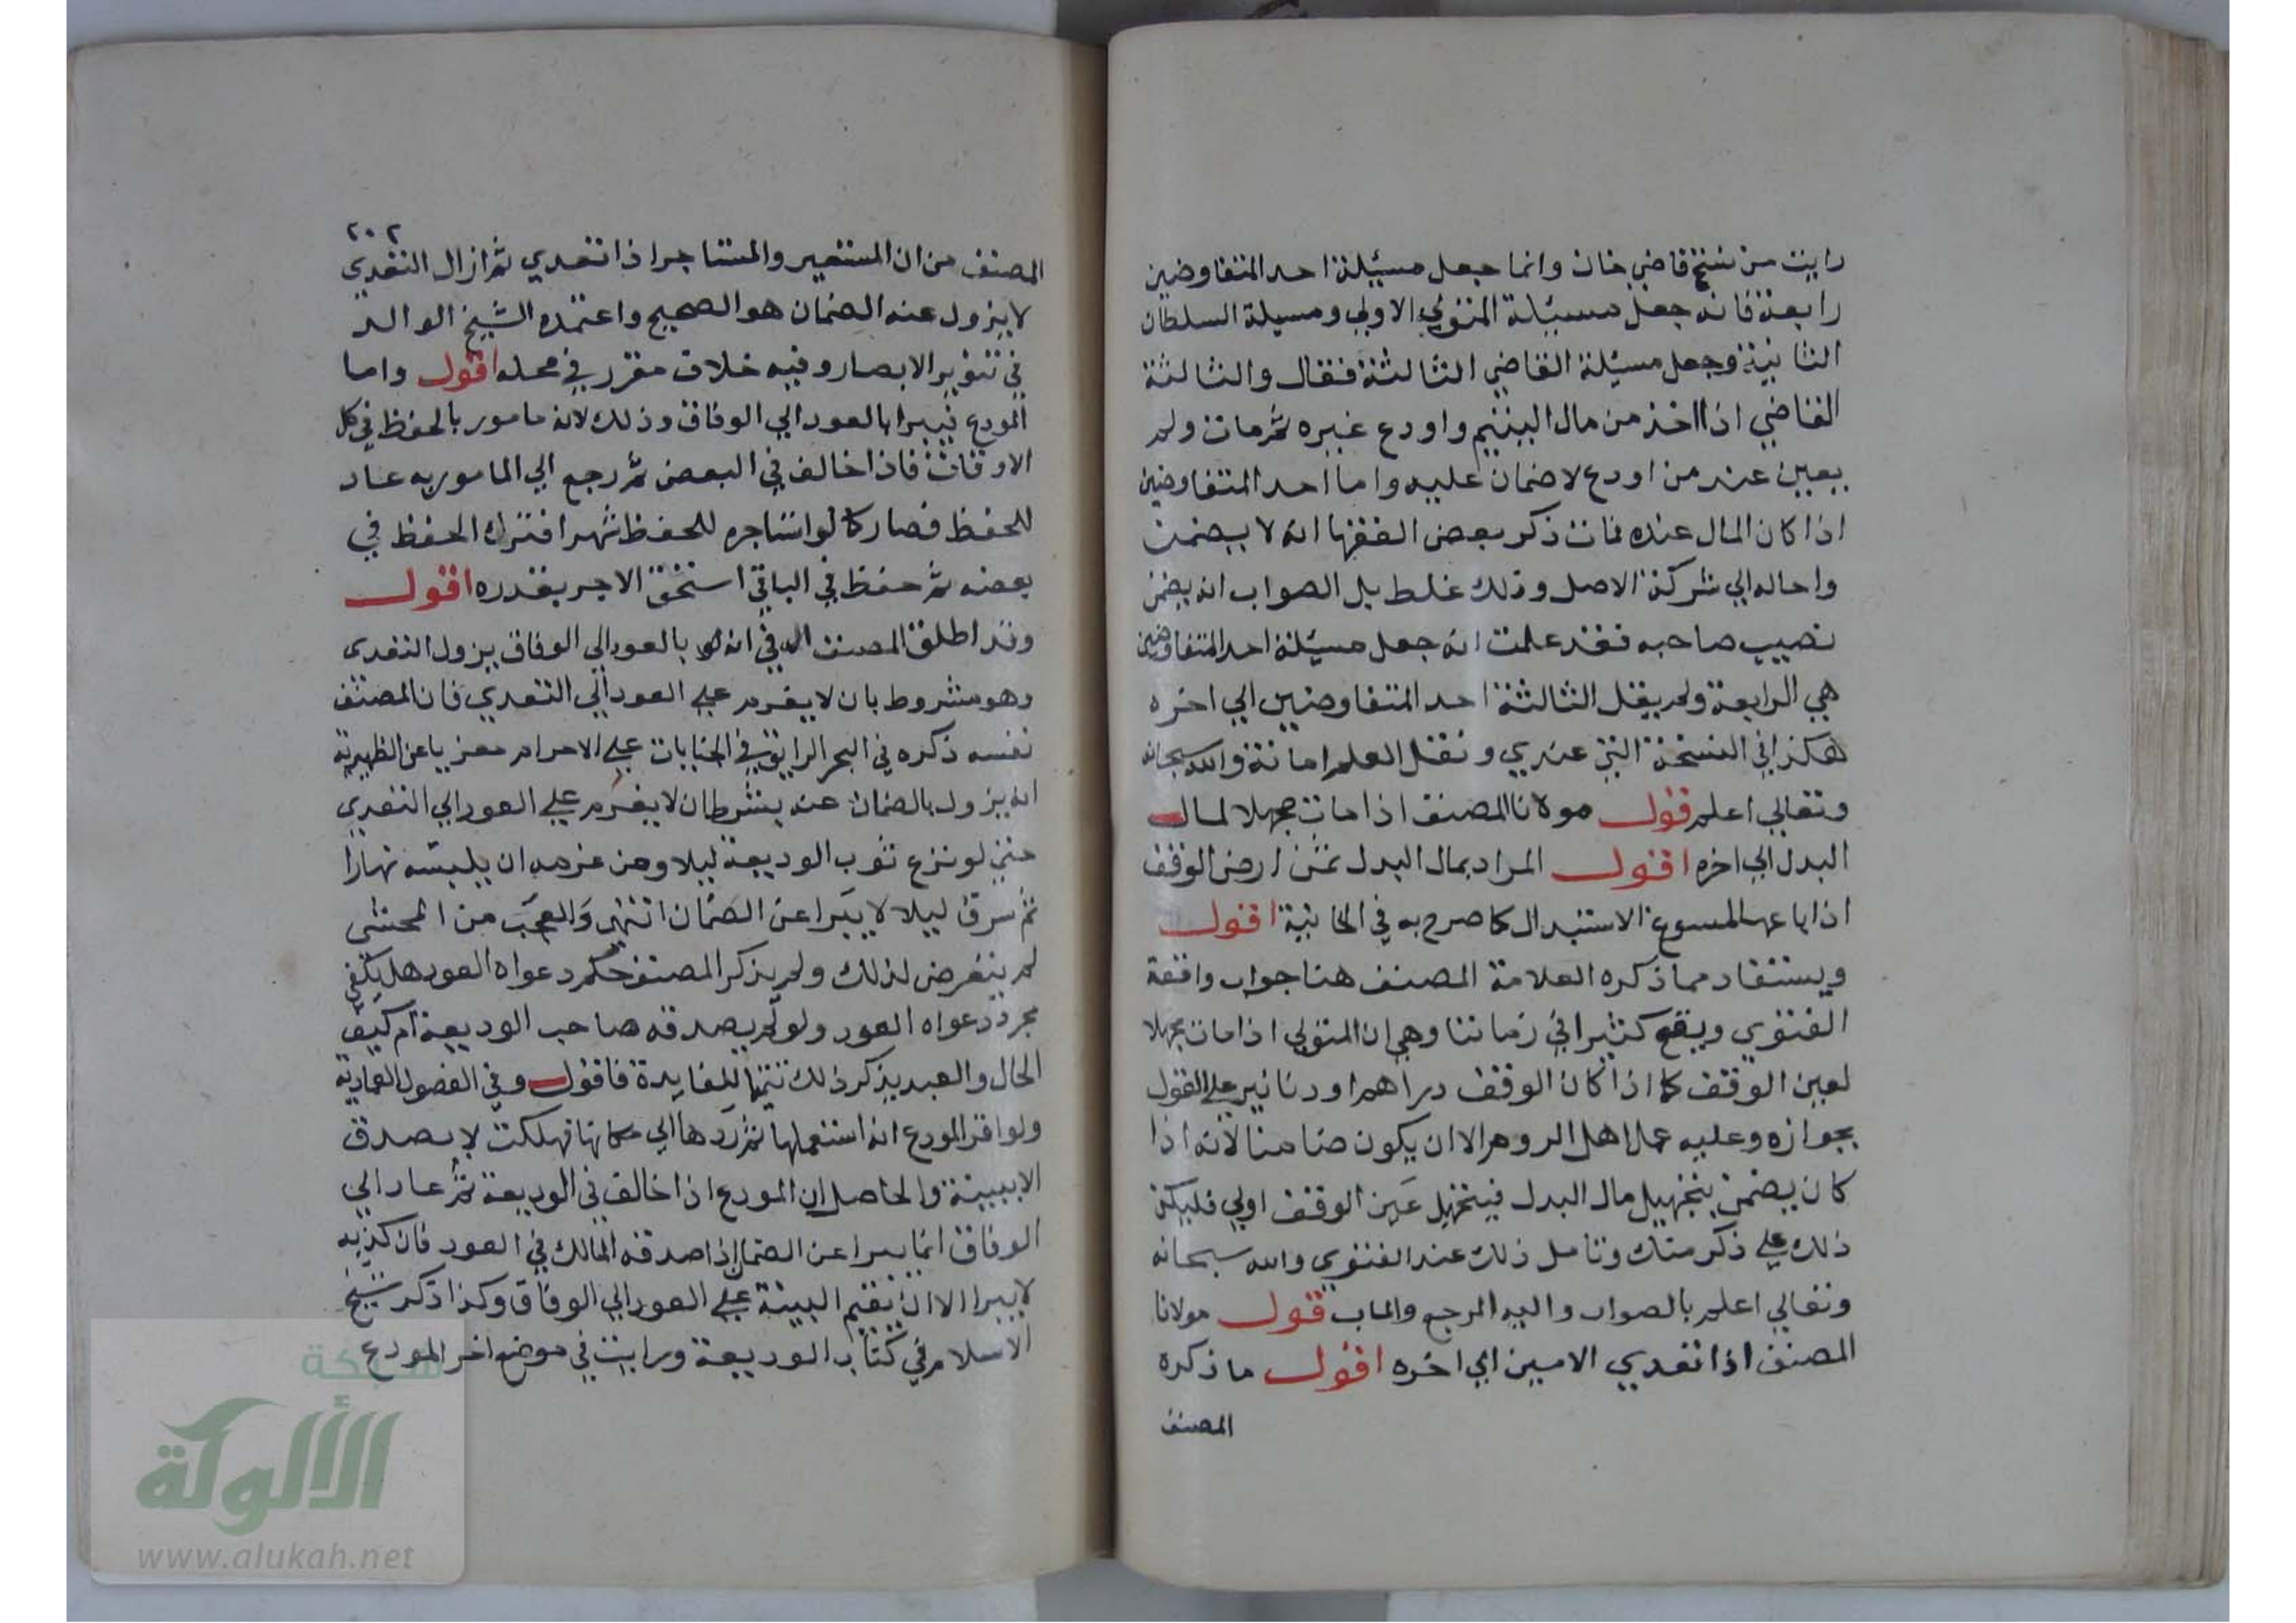 رايت من نسخ قاضي خان وانما جعل مسيئلة احد المتفاوضين
رابعة فانه جعل مسيئلة المتولي الاولي ومسيلة السلطان
الثانية وجعل مسيئلة القاضي الثالثة فقال والثالثة
القاضي اذا اخذ من مال اليتيم واودع غيره ثم مات ولم
يبين عند من اودع لا ضمان عليه واما احد المتفاوضين
اذا كان المال عنده فمات ذكر بعض الفقها انه لا يضمن
واحاله الي شركة الاصل وذلك غلط بل الصواب انه يضمن
نصيب صاحبه فقد علمت انه جعل مسيئلة احد المتفاوضين
هي الرابعة ولم يقل الثالثة احد المتفاوضين الي اخره
هكذا في النسخة التي عندي ونقل العلم امانة والله سبحانه
وتعالي اعلم قول مولانا المصنف اذا مات مجهلا لمال
البدل الي اخره اقول المراد بمال البدل ثمن ارض الوقف
اذا باعها لمسوغ الاستبدال كما صرح به في الخانية اقول
ويستفاد مما ذكره العلامة المصنف هنا جواب واقعة
الفتوي ويقع كثيرا في زماننا وهي ان المتولي اذا مات مجهلا
لعين الوقف كما اذا كان الوقف دراهم او دنانير علي القول
بجوازه وعليه عمل اهل الروم الا ان يكون ضامنا لانه اذا
كان يضمن بتجهيل مال البدل فبتجهيل عين الوقف اولي فليكن
ذلك علي ذكر منك وتامل ذلك عند الفتوي والله سبحانه
وتعالي اعلم بالصواب واليه المرجع والماب قول مولانا
المصنف اذا تعدي الامين الي اخره اقول ما ذكره
المصنف
٢٠٢
المصنف من ان المستعير والمستاجر اذا تعدي ثم ازال التعدي
لا يزول عنه الضمان هو الصحيح واعتمده الشيخ الوالد
في تنوير الابصار وفيه خلاف مقرر في محله اقول واما
المودع فيبرا بالعود الي الوفاق وذلك لانه مامور بالحفظ في كل
الاوقات فاذا خالف في البعض ثم رجع الي المامور به عاد
للحفظ فصار كما لو استاجره للحفظ شهرا فترك الحفظ في
بعضه ثم حفظ في الباقي استحق الاجر بقدره اقول
وقد اطلق المصنف في انه بالعود الي الوفاق يزول التعدي
وهو مشروط بان لا يعزم علي العود الي التعدي فان المصنف
نفسه ذكره في البحر الرايق في الجنايات علي الاحرام معزيا عن الظهيرية
انه يزول بالضمان عنه بشرط ان لا يعزم علي العود الي التعدي
حتي لو نزع ثوب الوديعة ليلا ومن عزمه ان يلبسه نهارا
ثم سرق ليلا لا يبرا عن الضمان انتهي والعجب من المحشي
لم يتعرض لذلك ولم يذكر المصنف حكم دعواه العود هل يكفي
مجرد دعواه العود ولو لم يصدقه صاحب الوديعة ام كيف
الحال والعبد يذكر ذلك تتميما للفايدة فاقول وفي الفصول العمادية
ولو اقر المودع انه استعملها ثم ردها الي مكانها فهلكت لا يصدق
الا ببينة والحاصل ان المودع اذا خالف في الوديعة ثم عاد الي
الوفاق انما يبرا عن الضمان اذا صدقه المالك في العود فان كذبه
لا يبرا الا ان يقيم البينة علي العود الي الوفاق وكذا ذكر شيخ
الاسلام في كتاب الوديعة ورايت في موضع اخر المودع
شبكة
الألوكة
www.alukah.net